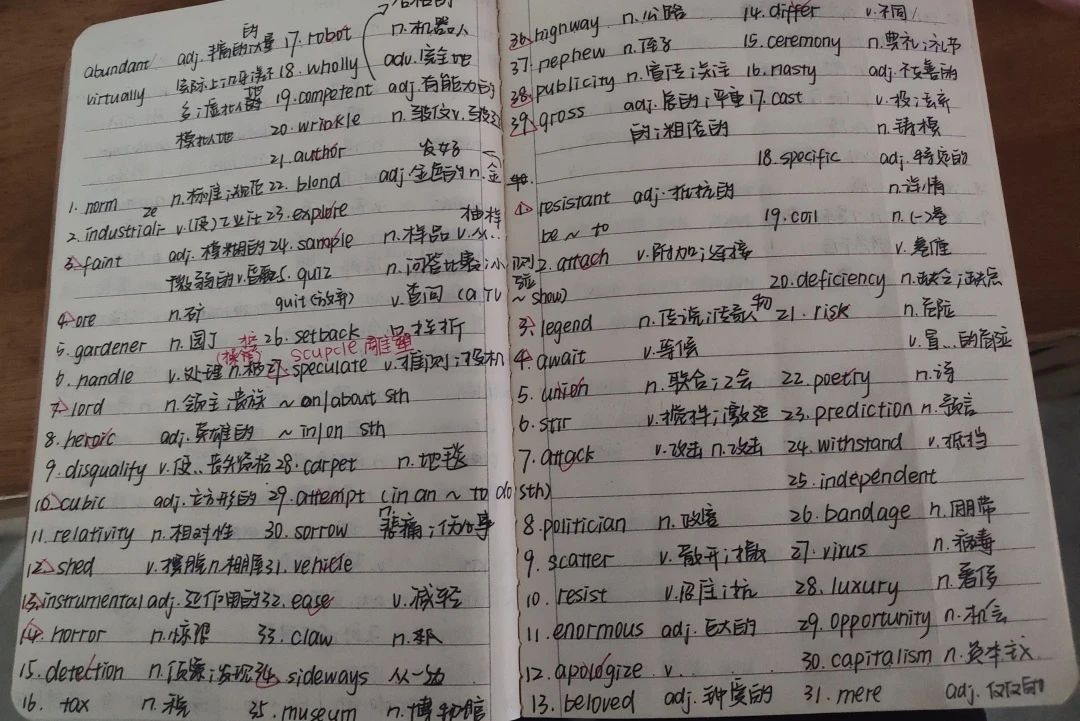 的
abundant adj. 大量 17. robot n. 机器人
virtually 实际上 18. wholly adv. 完全地
19. competent adj. 有能力的
模拟地 20. wrinkle n. 皱纹 v.
21. author 发好
1. norm n. 标准;规范 22. blond adj. 金色的 n. 金
2. industrialize v. (使)工业化 23. explore
3. faint adj. 模糊的 24. sample n. 样品 v. 从.. 抽样
微弱的 v. 25. quiz n. 问答比赛;小测验
4. ore n. 矿 quit (放弃) v. 查问 (a TV ~ show)
5. gardener n. 园丁 26. setback n. 挫折
scupcle 雕塑
6. handle v. 处理 n. 27. speculate v. 推测;投机
7. lord n. 领主;贵族 ~ on/about sth
8. heroic adj. 英雄的 ~ in/on sth
9. disqualify v. 使..丧失资格 28. carpet n. 地毯
10. cubic adj. 立方形的 29. attempt (in an ~ to do sth)
n.
11. relativity n. 相对性 30. sorrow 悲痛;伤心事
12. shed v. 摆脱 n. 棚屋 31. vehicle
13. instrumental adj. 起作用的 32. ease v. 减轻
14. horror n. 惊恐 33. claw n. 爪
15. detection n. 侦察;发现 34. sideways 从一边
16. tax n. 税 35. museum n. 博物馆
36. highway n. 公路 14. differ v. 不同
37. nephew n. 侄子 15. ceremony n. 典礼;礼节
38. publicity n. 宣传;关注 16. nasty adj. 不善的
39. gross adj. 总的;严重 17. cast v. 投;
的;粗俗的 n. 铸模
18. specific adj. 特定的
1. resistant adj. 抵抗的 n. 详情
be ~ to 19. coil n. (一)卷
2. attach v. 附加;连接 v. 卷
20. deficiency n. 缺乏;缺点
3. legend n. 传说;传奇人物 21. risk n. 危险
4. await v. 等候 v. 冒...的危险
5. union n. 联合;工会 22. poetry n. 诗
6. stir v. 搅拌;激起 23. prediction n. 预言
7. attack v. 攻击 n. 攻击 24. withstand v. 抵挡
25. independent
8. politician n. 政客 26. bandage n. 绷带
9. scatter v. 散开;撒 27. virus n. 病毒
10. resist v. 28. luxury n. 奢侈
11. enormous adj. 巨大的 29. opportunity n. 机会
12. apologize v. 30. capitalism n. 资本主义
13. beloved adj. 钟爱的 31. mere adj. 仅仅的